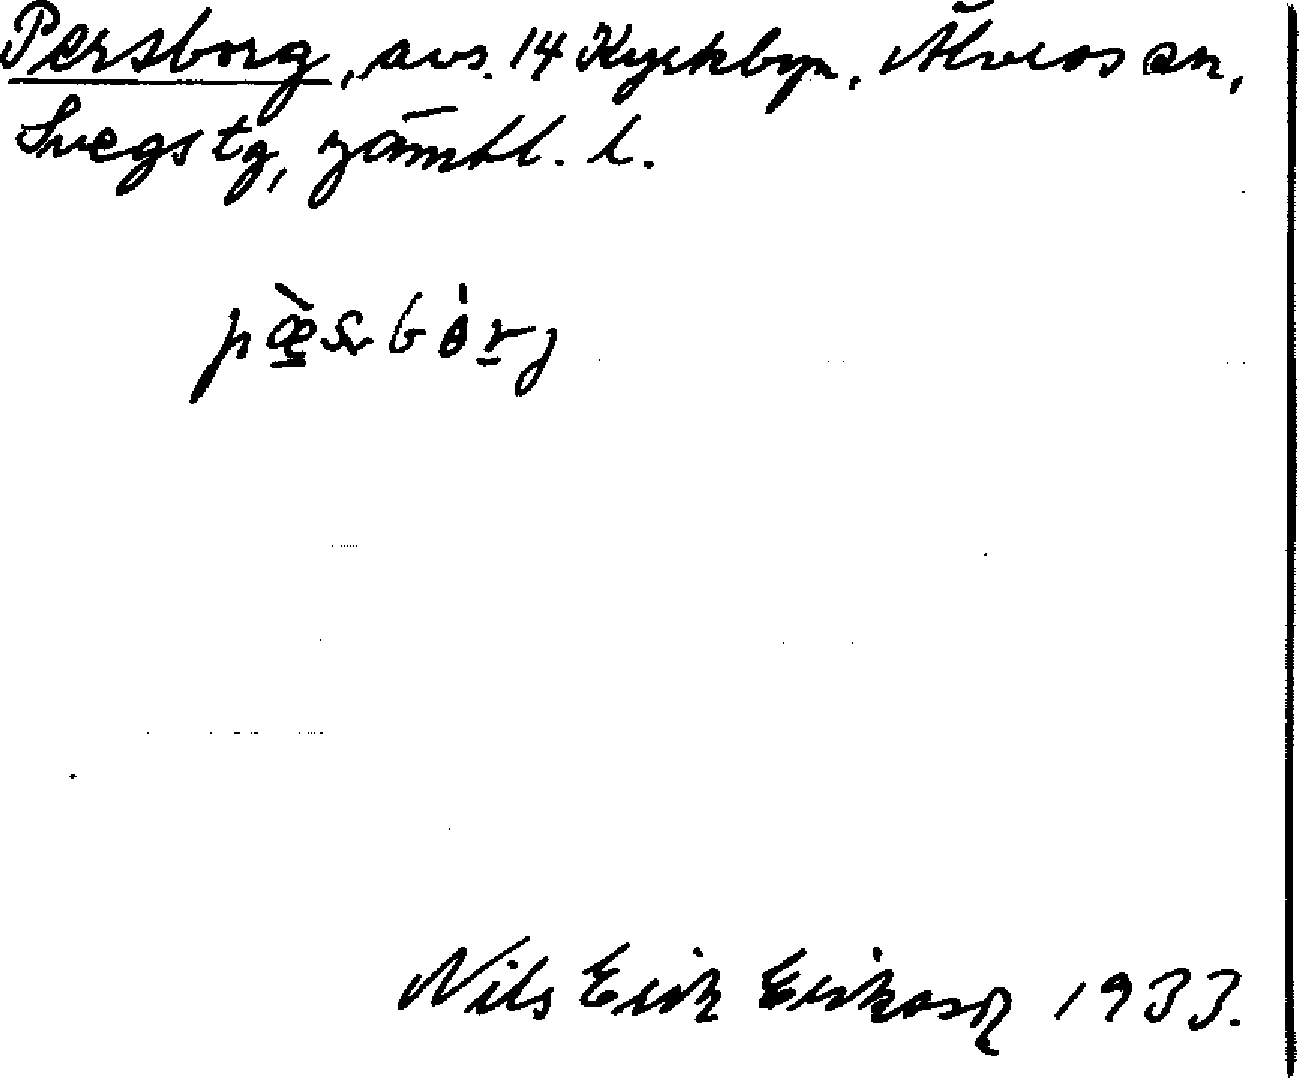 Persborg, avs. 14 Kyrkbyn, Älvros sn,
Svegs tg, Jämtl. l.
Nils Erik Eriksson 1933.